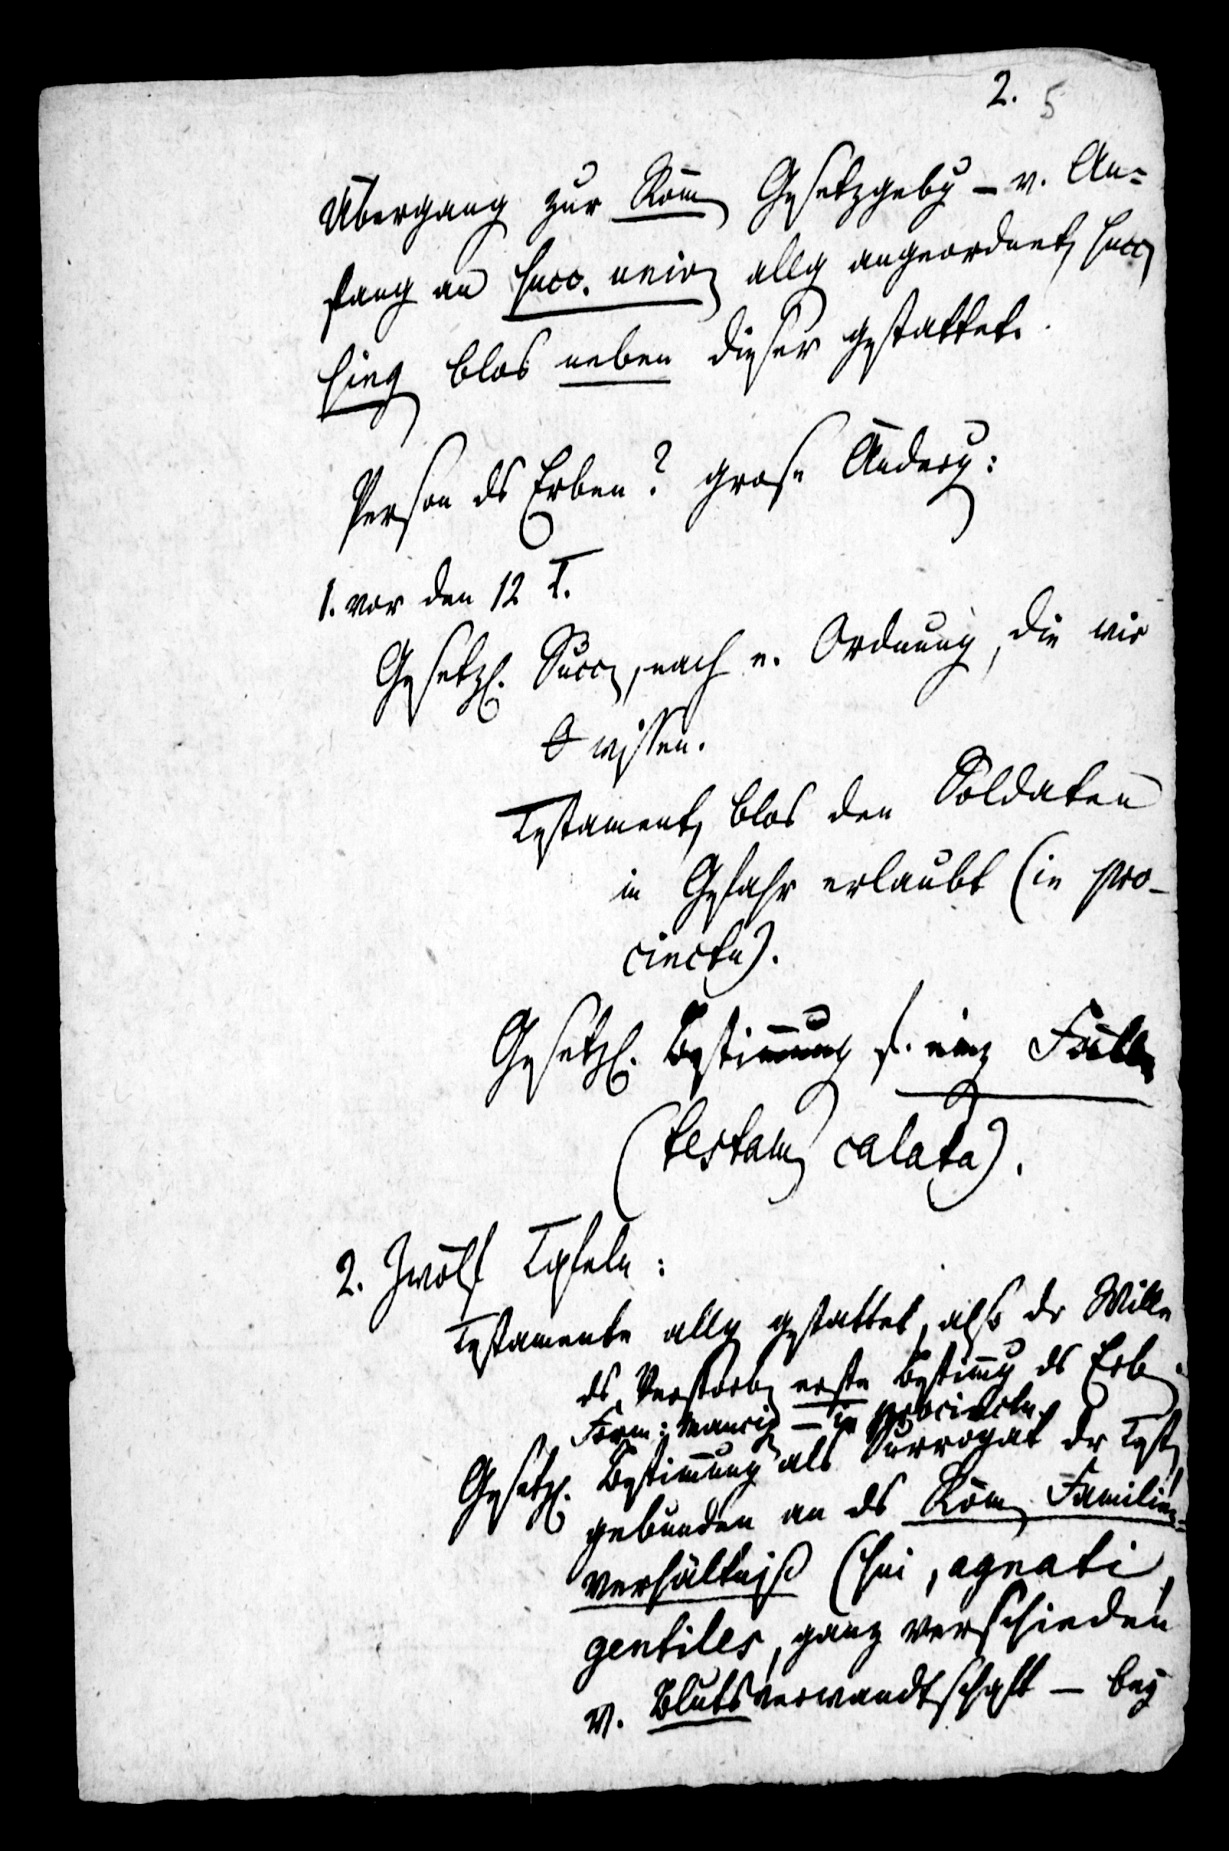 2. 5
Übergang zur Röm Gesetzgebg – v. An=
fang an succ. univ allg angeordnet, succ
sing blos neben dieser gestattet.
Person ds Erben? grose Änderg:
1. vor den 12 T.
Gesetzl. Succ, nach e. Ordnung, die wir
0 wissen.
Testament, blos den Soldaten
in Gefahr erlaubt (in pro-
cinctu).
Gesetzl. Bestimmung f. einz Fälle
(testam calata).
2. Zwölf Tafeln:
Testamente allg gestattet, also dr Wille
ds Verstorb erste Bestimmg ds Erb.
Form: mancip – in procinctu.
Gesetzl. Bestimmung als Surrogat dr Test,
gebunden an ds Röm Familien=
verhältniß (sui, agnati,
gentiles, ganz verschieden
v. Blutsverwandtschaft – bey